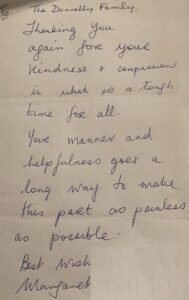 To The Donnelly Family.
Thanking You
again for your
kindness & compassion
in what is a tough
time for all.
Your manner and
helpfulness goes a
long way to make
this part as painless
as possible.
Best Wish
Margaret